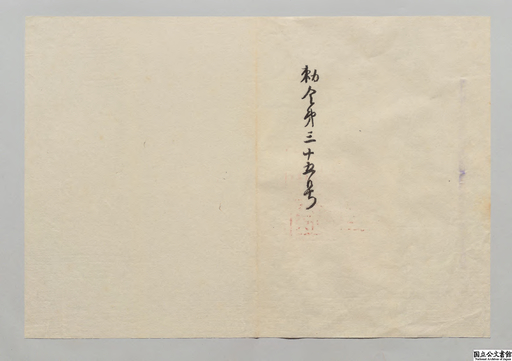 勅令第三十五号
国立公文書館
National Archives of Japan